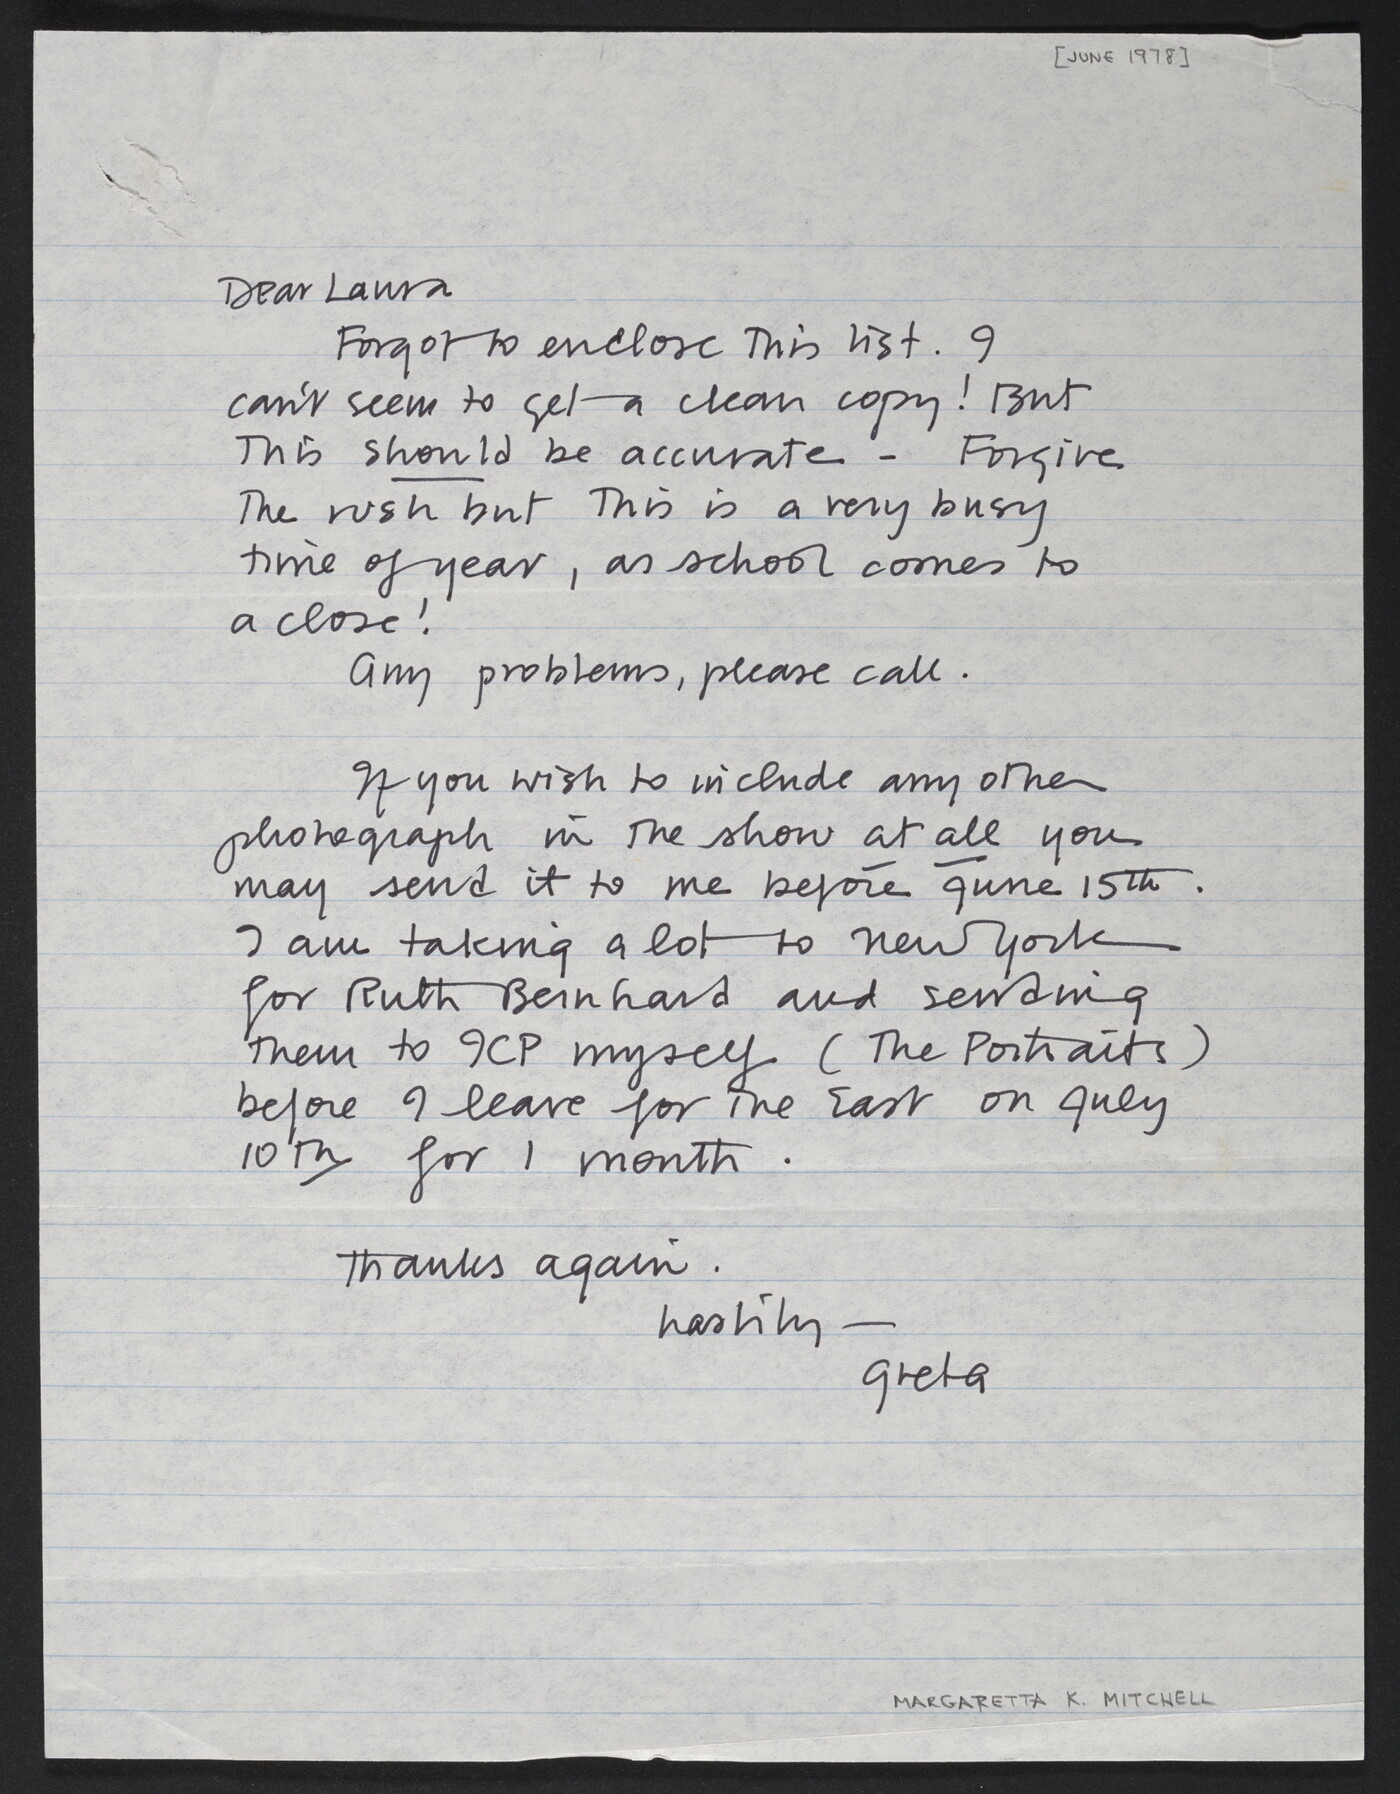 [JUNE 1978]
Dear Laura
Forgot to enclose This list. I
can't seem to get a clean copy! But
This should be accurate - Forgive
The rush but This is a very busy
time of year, as school comes to
a close!
Any problems, please call.
If you wish to include any other
photograph in The show at all you
may send it to me before June 15th.
I am taking a lot to New York
for Ruth Bernhard and sending
Them to ICP myself (The Portraits)
before I leave for The East on July
10Th for 1 month.
Thanks again.
hastily —
Greta
MARGARETTA K. MITCHELL